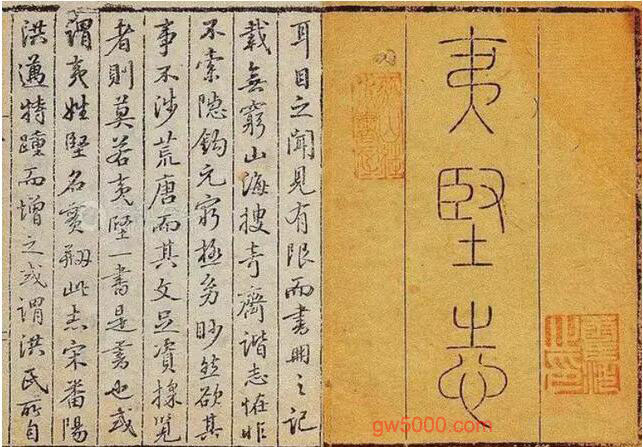 夷堅志
耳目之聞見有限而書冊之記
載無窮山海搜奇齊諧志怪非
不索隱鈎元窮極幼眇然欲其
事不涉荒唐而其文足資採覽
者則莫若夷堅一書是書也或
謂夷姓堅名實剏此志宋番陽
洪邁特踵而增之或謂洪氏所自
gw5000.com